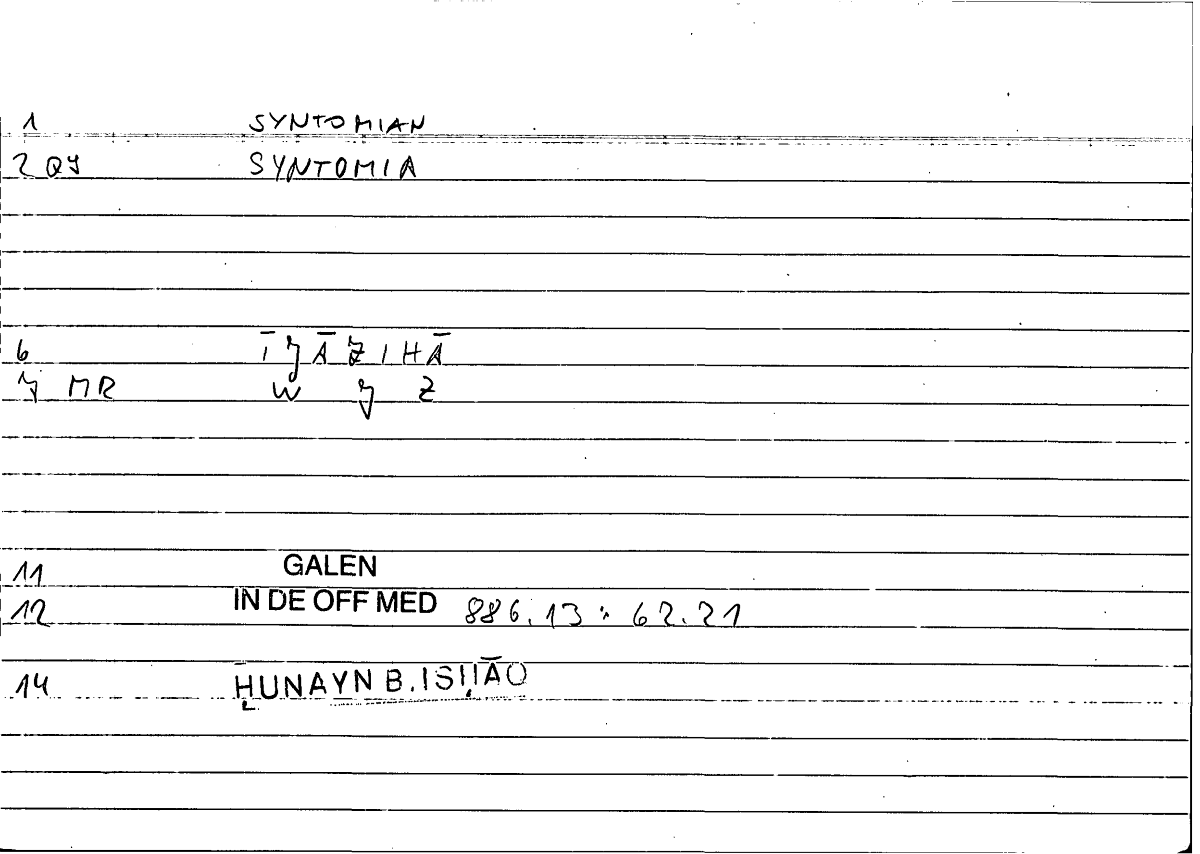 1 SYNTOMIAN
2 QJ SYNTOMIA
6 ĪJĀZIHĀ
J MR W J Z
11 GALEN
12 IN DE OFF MED 886.13 : 62.21
14 ḤUNAYN B. ISḤĀQ